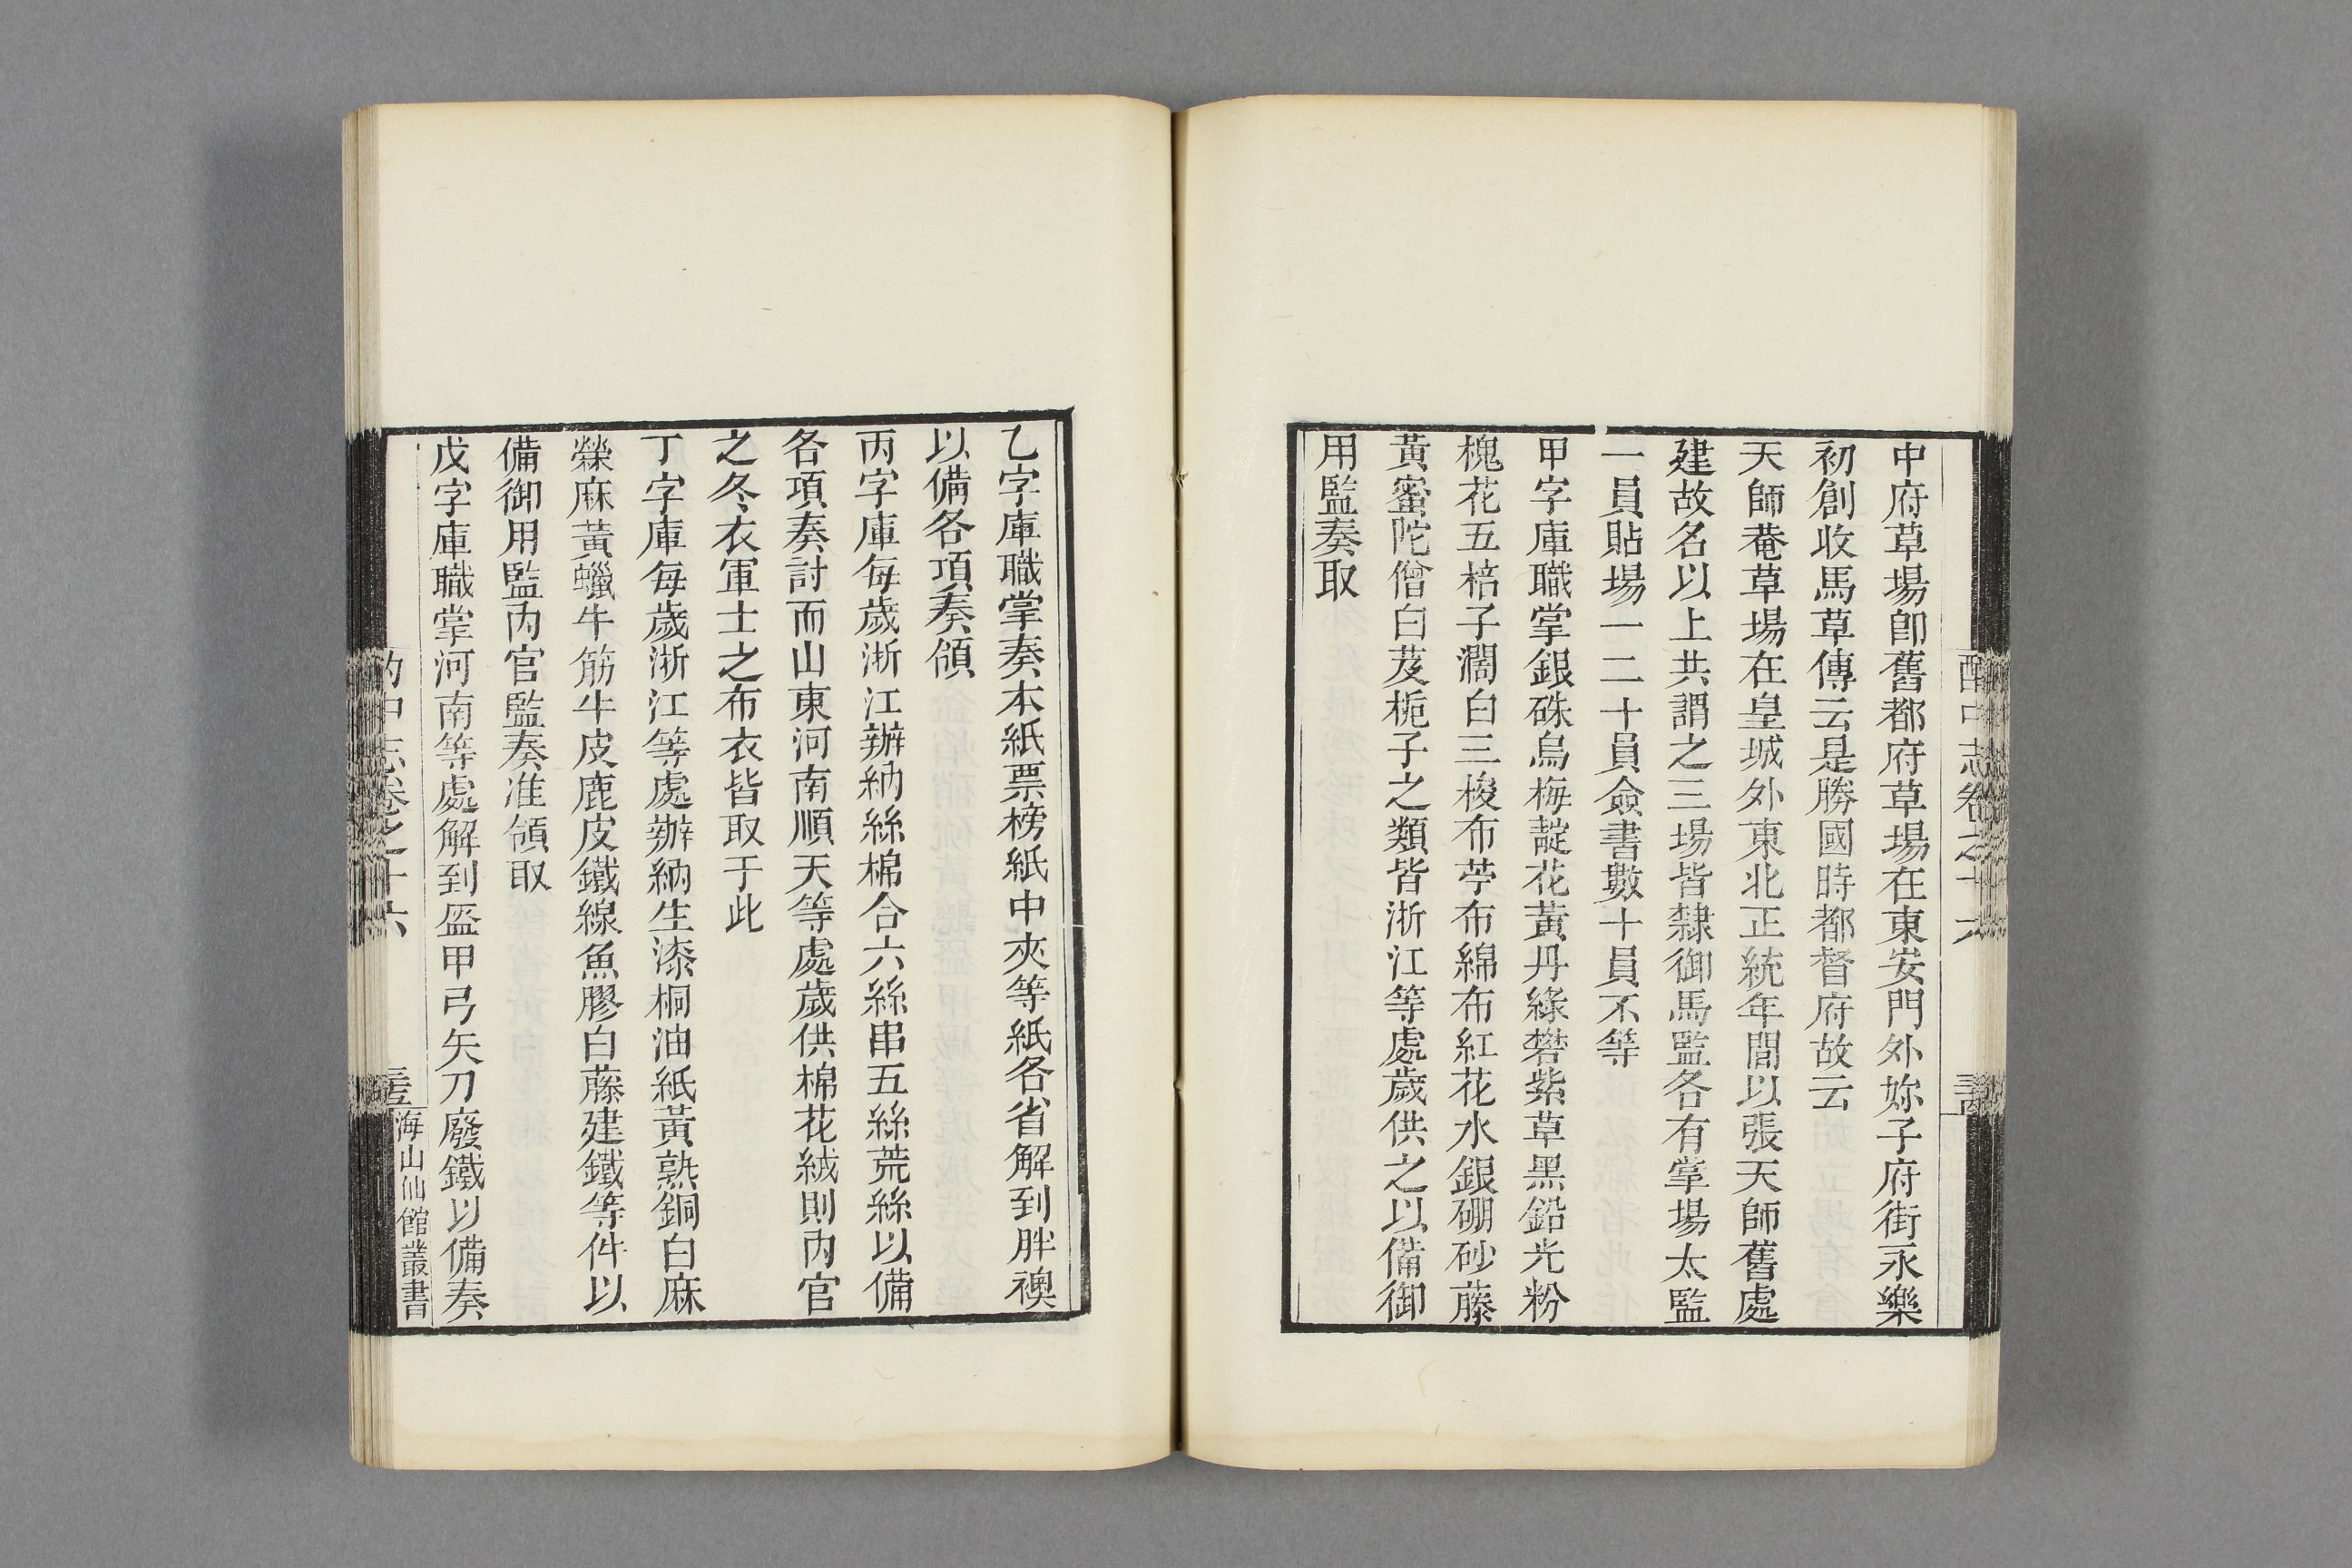 中府草場卽舊都府草場在東安門外妳子府街永樂
初創收馬草傳云是勝國時都督府故云
天師菴草場在皇城外東北正統年間以張天師舊處
建故名以上共謂之三場皆隸御馬監各有掌場太監
一員貼場一二十員僉書數十員不等
甲字庫職掌銀硃烏梅靛花黃丹綠礬紫草黑鉛光粉
槐花五棓子濶白三梭布苧布綿布紅花水銀硼砂藤
黃蜜陀僧白芨梔子之類皆浙江等處歲供之以備御
用監奏取
乙字庫職掌奏本紙票榜紙中夾等紙各省解到胖襖
以備各項奏領
丙字庫每歲浙江辦納絲棉合六絲串五絲荒絲以備
各項奏討而山東河南順天等處歲供棉花絨則內官
之冬衣軍士之布衣皆取于此
丁字庫每歲浙江等處辦納生漆桐油紙黃熟銅白麻
檾麻黃蠟牛筋牛皮鹿皮鐵線魚膠白藤建鐵等件以
備御用監內官監奏准領取
戊字庫職掌河南等處解到盔甲弓矢刀廢鐵以備奏
酌中志卷之十六
海山仙館叢書